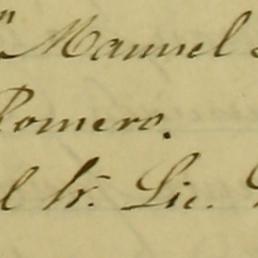 " Manuel
Romero.
l Sr. Lic.